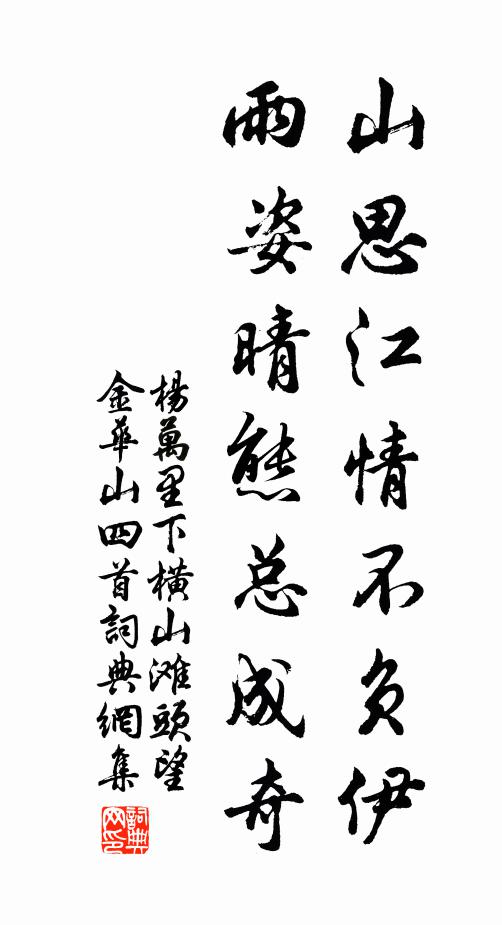 山思江情不负伊
雨姿晴態总成奇
楊萬里下横山滩頭望
金華山四首詞典網集
詞典
网印